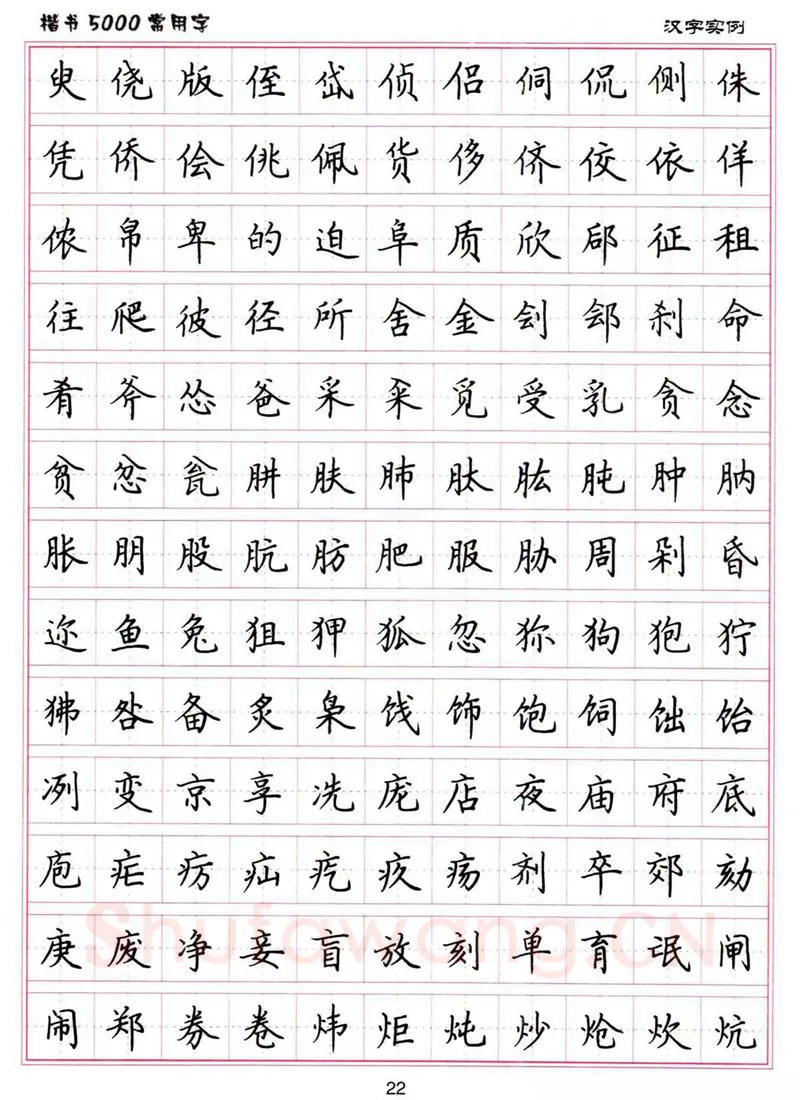 楷书5000常用字 汉字实例
臾 侥 版 侄 岱 侦 侣 侗 侃 侧 侏
凭 侨 侩 佻 佩 货 侈 侪 佼 依 佯
侬 帛 卑 的 迫 阜 质 欣 郈 征 徂
往 爬 彼 径 所 舍 金 刽 郐 刹 命
肴 斧 怂 爸 采 籴 觅 受 乳 贪 念
贫 忿 瓮 肼 肤 肺 肽 肱 肫 肿 肭
胀 朋 股 肮 肪 肥 服 胁 周 剁 昏
迩 鱼 兔 狙 狎 狐 忽 狝 狗 狍 狞
狒 咎 备 炙 枭 饯 饰 饱 饲 饳 饴
冽 变 京 享 冼 庞 店 夜 庙 府 底
庖 疟 疠 疝 疙 疚 疡 剂 卒 郊 劾
庚 废 净 妾 盲 放 刻 单 育 氓 闸
闹 郑 券 卷 炜 炬 炖 炒 炝 炊 炕
Shufawang.CN
22